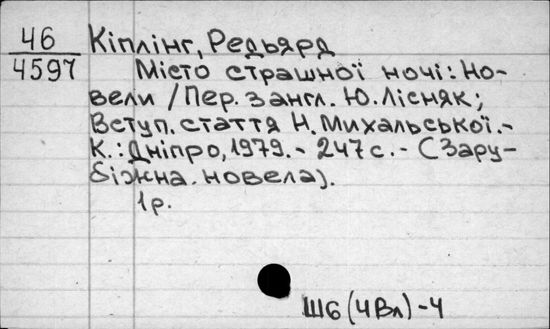 46
4597
Кіплінг, Редьярд
Місто страшної ночі: Но-
вели / Пер. з англ. Ю. Лісняк;
Вступ. стаття Н. Михальської.-
К.: Дніпро, 1979. - 247 с. - (Зару-
біжна новела).
1р.
Ш6 (4Вл) - 4